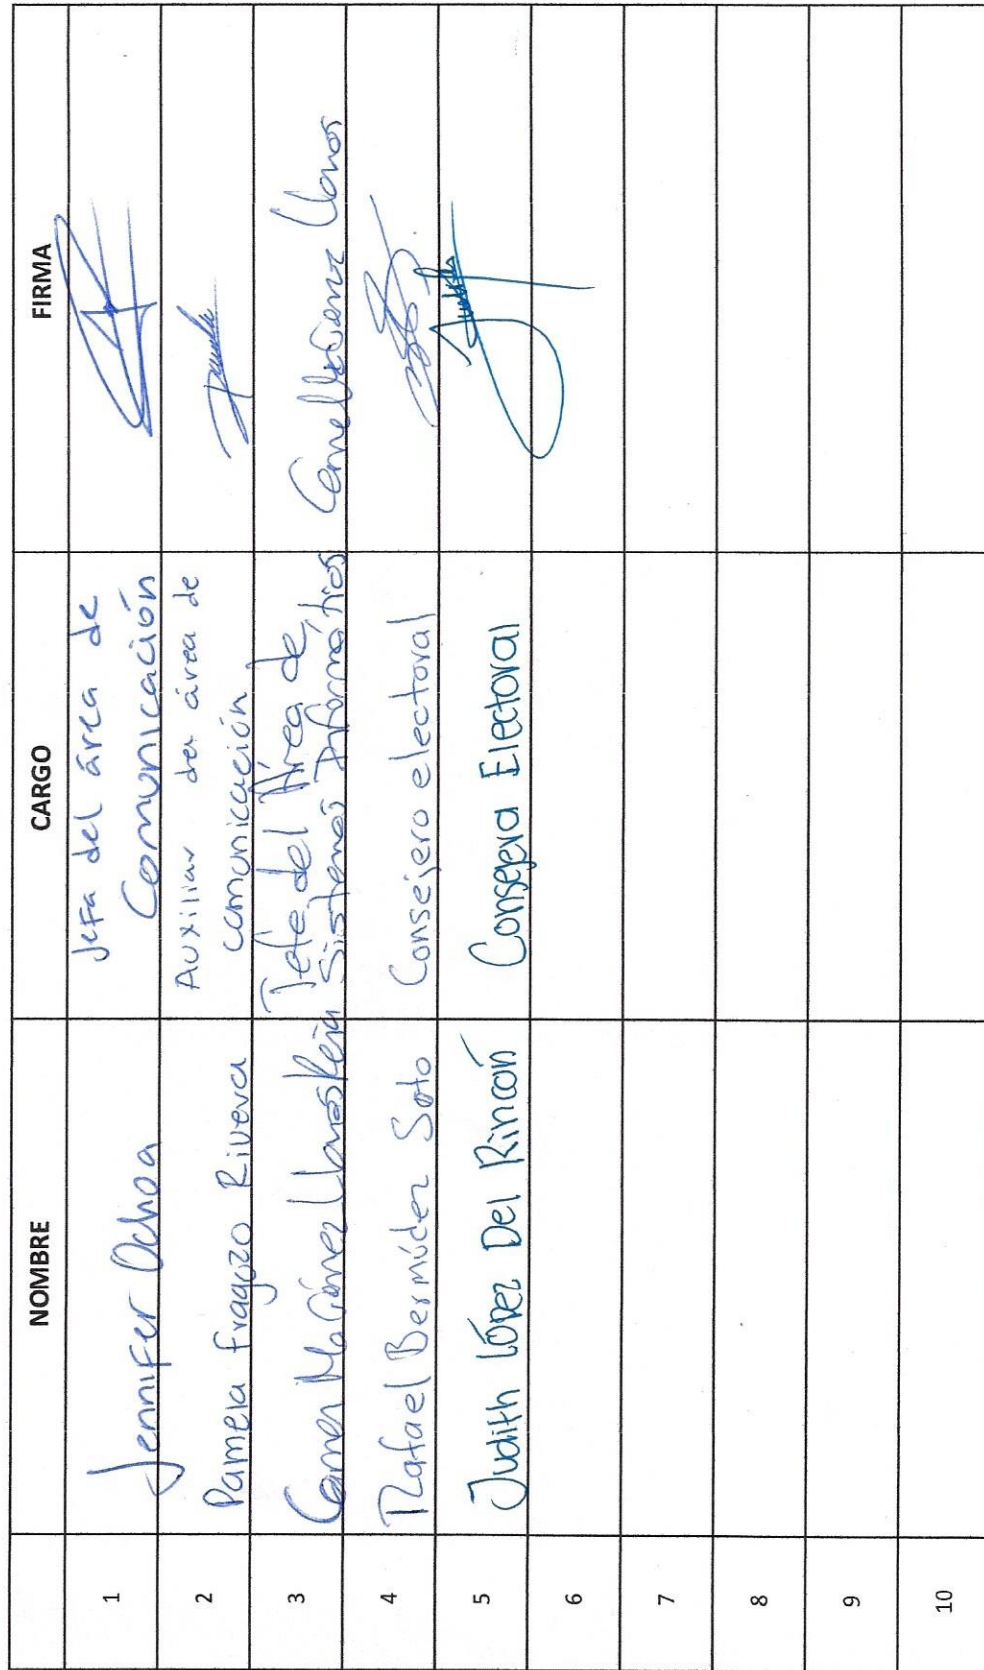 NOMBRE CARGO FIRMA
1 Jennifer Ochoa Jefa del área de
Comunicación
2 Pamela Fragozo Rivera Auxiliar del área de
comunicación
3 Jefe del Área de
Sistemas Informáticos
4 Rafael Bermúdez Soto Consejero electoral
5 Judith López Del Rincón Consejera Electoral
6
7
8
9
10